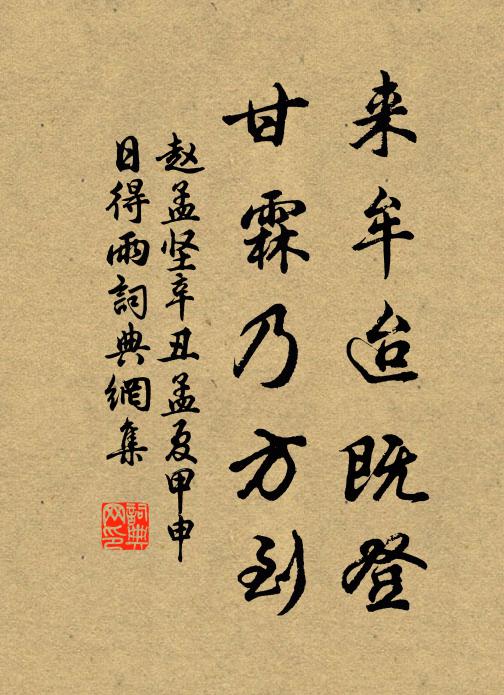 来牟迨既登
甘霖乃方到
赵孟坚辛丑孟夏甲申
日得雨词典網集
詞典
网印